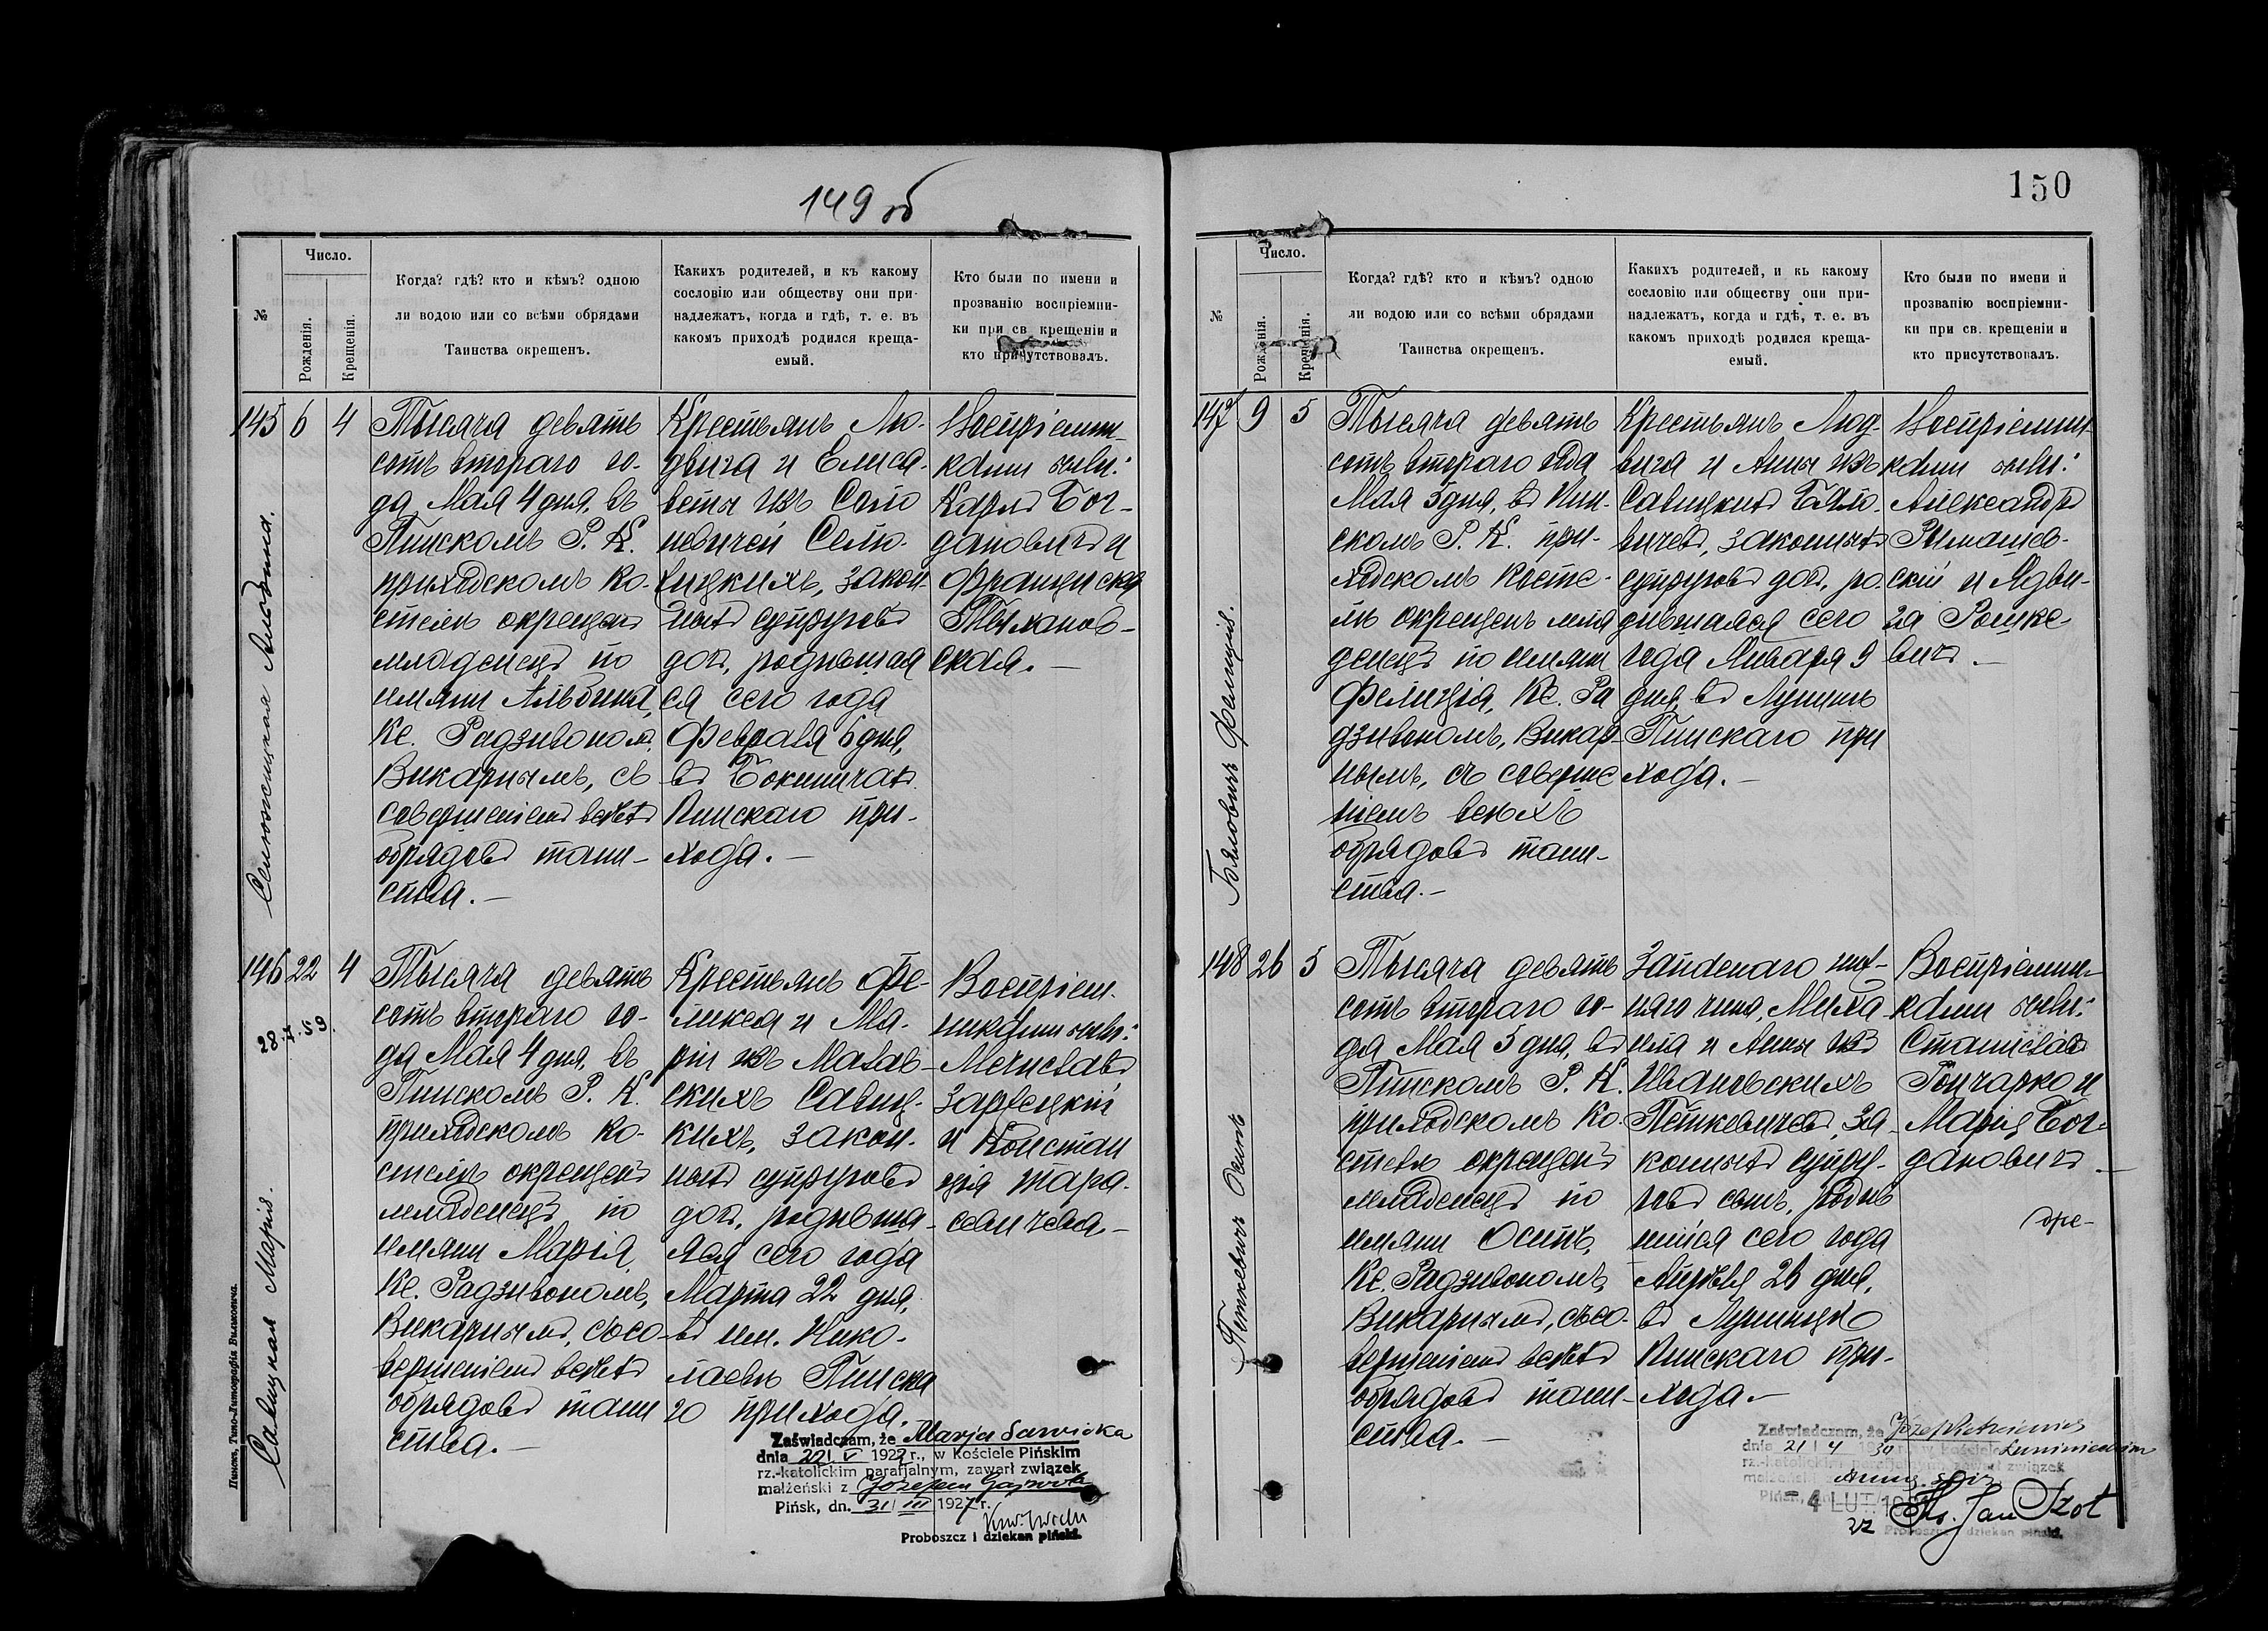 149 об
№
Число.
Рожденія.
Крещенія.
Когда? гдѣ? кто и кѣмъ? одною
ли водою или со всѣми обрядами
Таинства окрещенъ.
Какихъ родителей, и къ какому
сословію или обществу они при-
надлежатъ, когда и гдѣ, т. е. въ
какомъ приходѣ родился креща-
емый.
Кто были по имени и
прозванію воспріемни-
ки при св. крещеніи и
кто присутствовалъ.
145 6 4
Тысяча девять
сотъ втораго го-
да Мая 4 дня, въ
Пинскомъ Р. К.
приходскомъ ко-
стелѣ окрещенъ
младенецъ по
имяни Альбина,
Кс. Радзивономъ,
Викарнымъ, съ
совершеніемъ всѣхъ
обрядовъ таин-
ства.—
Крестьянъ Лю-
двига и Елиса-
веты изъ
Семе-
закон-
ныхъ супруговъ
доч, родившая
ся сего года
Февраля 6 дня,
въ Бокиничахъ
Пинскаго при-
хода.—
Воспріемни-
ками были:
Карлъ Бог-
дановичъ и
Франциска
Тыханов-
ская.—
146 22 4
28.X.59.
Тысяча девять
сотъ втораго го-
да Мая 4 дня, въ
Пинскомъ Р. К.
приходскомъ ко-
стелѣ окрещенъ
младенецъ по
имяни Марія,
Кс. Радзивономъ,
Викарнымъ, съ со-
вершеніемъ всѣхъ
обрядовъ таин
ства.—
Крестьянъ Фе-
ликса и Ма-
ріи изъ
скихъ Савиц-
кихъ, закон-
ныхъ супруговъ
доч, родивша-
яся сего года
Марта 22 дня,
въ им. Нико-
лаевѣ Пинска
го прихода.
Воспріем-
никами были:
Мечиславъ
Зарѣцкій
и Констан
ція Тара-
севичева.—
Савицкая Марія.
Пинскъ, Типо-Литографія Вилковича.
Zaświadczam, że Marja Sawicka
dnia 20 V 1927 r., w Kościele Pińskim
rz.-katolickim parafjalnym, zawarł związek
małżeński z Józefem
Pińsk, dn. 31 III 1927 r.
Proboszcz i dziekan piński.
150
№
Число.
Рожденія.
Крещенія.
Когда? гдѣ? кто и кѣмъ? одною
ли водою или со всѣми обрядами
Таинства окрещенъ.
Какихъ родителей, и къ какому
сословію или обществу они при-
надлежатъ, когда и гдѣ, т. е. въ
какомъ приходѣ родился креща-
емый.
Кто были по имени и
прозванію воспріемни-
ки при св. крещеніи и
кто присутствовалъ.
147 9 5
Тысяча девять
сотъ втораго года
Мая 5 дня, въ Пин-
скомъ Р. К. при-
ходскомъ косте-
лѣ окрещенъ мла
денецъ по имяни
Фелиція, Кс. Ра
дзивономъ, Викар-
нымъ, съ соверше
ніемъ всѣхъ
обрядовъ таин-
ства.—
Крестьянъ Люд-
вига и Анны изъ
Савицкихъ Бяло-
вичевъ, законныхъ
супруговъ доч, ро-
дившаяся сего
года Января 9
дня, въ Лунинѣ
Пинскаго при
хода.—
Воспріемни-
ками были:
Александръ
Рымашев-
скій и Ядви-
га Рошке-
вичъ.—
Фелиція.
148 26 5
Тысяча девять
сотъ втораго го-
да Мая 5 дня, въ
Пинскомъ Р. К.
приходскомъ ко-
стелѣ окрещенъ
младенецъ по
имяни Осипъ,
Кс. Радзивономъ,
Викарнымъ, съ со-
вершеніемъ всѣхъ
обрядовъ таин-
ства.—
Запаснаго ниж-
няго чина, Миха
ила и Анны изъ
Ивановскихъ
Петкевичевъ, за-
конныхъ супру-
говъ сынъ, родив
шійся сего года
Апрѣля 26 дня,
въ Лунинцѣ
Пинскаго при-
хода.—
Воспріемни-
ками были:
Станиславъ
Гончарко и
Марія Бог-
дановичъ.—
Петкевичъ Осипъ
Zaświadczam, że Józef Pietkiewicz
dnia 21/4 1930 r. w kościele Łuninieckim
rz.-katolickim parafjalnym zawarł związek
małżeński
- 4 LUT.
Ks. Jan Szot
Proboszcz i dziekan piński.